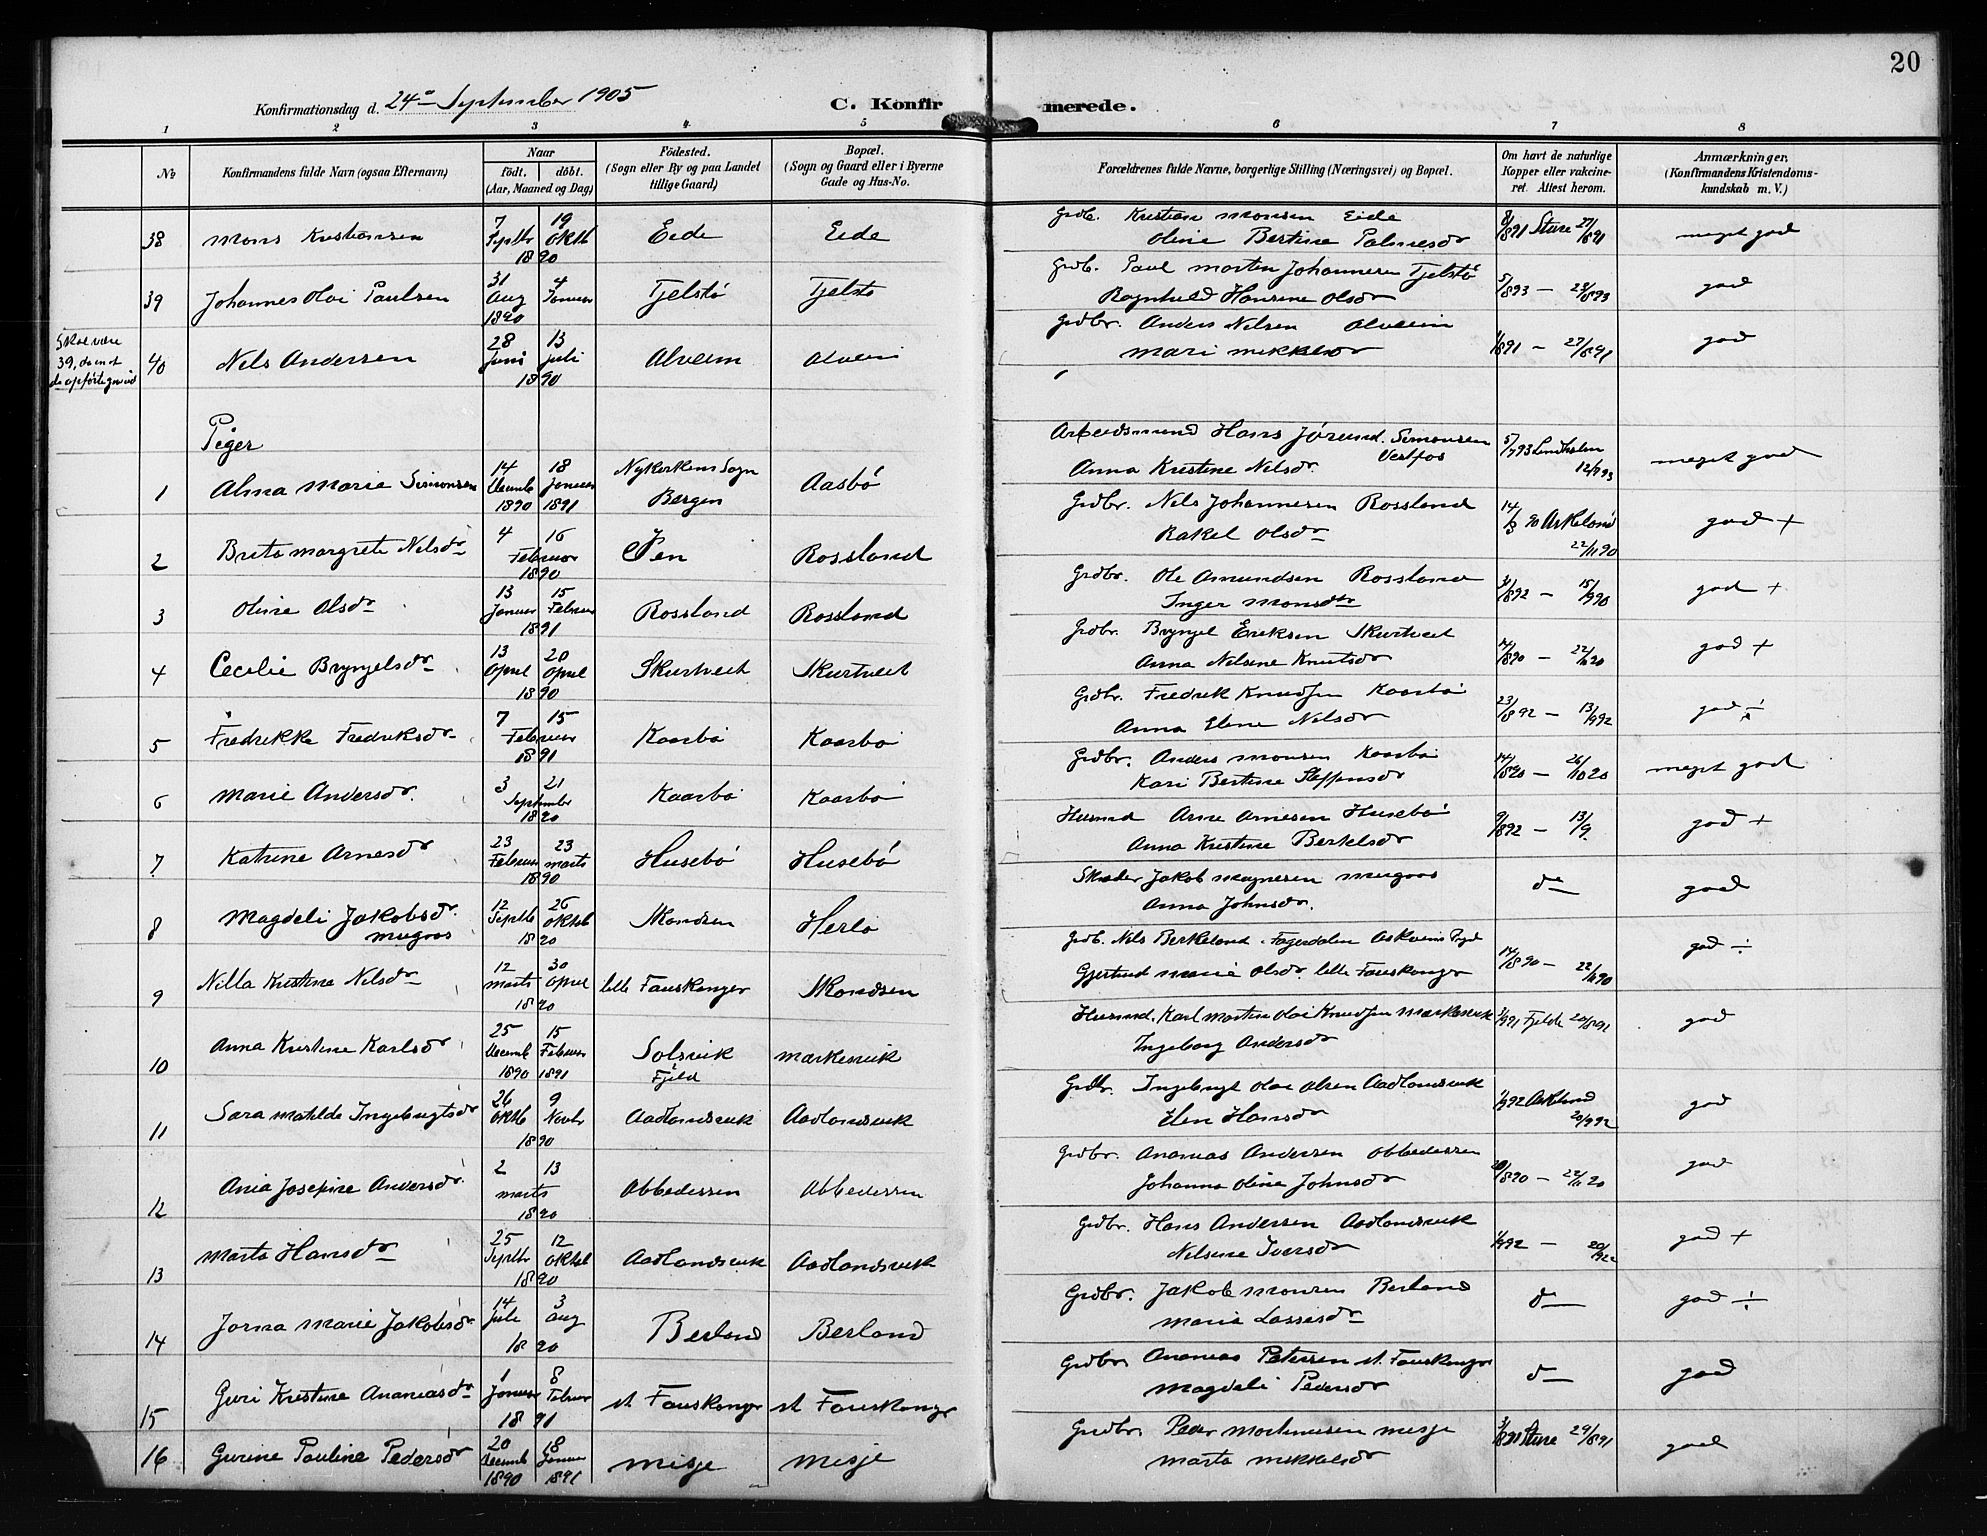 20
Konfirmationsdag d. 24de September 1905
C. Konfirmerede.
1 2 3 4 5 6 7 8
No
Konfirmandens fulde Navn (ogsaa Efternavn)
Naar
födt. döbt.
(Aar, Maaned og Dag)
Födested.
(Sogn eller By og paa Landet
tillige Gaard)
Bopæl.
(Sogn og Gaard eller i Byerne
Gade og Hus-No.
Forældrenes fulde Navne, borgerlige Stilling (Næringsvei) og Bopæl.
Om havt de naturlige
Kopper eller vakcine-
ret. Attest herom.
Anmærkninger.
(Konfirmandens Kristendoms-
kundskab m. V.)
38 Mons Kristiansen 7 Septbr 19 Oktb 1890 Eide Eide
Grdb. Kristian Monsen Eide
Oline Bertine Palmesdr
8/891 Sture 27/891 meget god
39 Johannes Olai Paulsen 31 Aug 4 Januar 1890 Tjelstö Tjelstö
Grdb. Paul Martin Johannesen Tjelstö
Ragnhild Hansine Olsdr
5/893 — 24/893 god
Skal være
39, da en st
40 Nels Andersen 28 Juni 13 Juli 1890 Alveim Alveim
Grdbr. Anders Nilsen Alveim
Mari Mikkelsdr
1/891 — 27/891 god
Piger
1 Alma Marie Simonsen 14 Decemb 1890 18 Januar 1891 Nykirkens Sogn Bergen Aasbö
Arbeidsmand Hans Jörund. Simonsen Vestfos
Anna Kristine Nelsdr.
5/793 Lindholm 12/793 meget god
2 Brita Margrete Nelsdr 4 16 Februar 1890 Pen Rossland
Grdbr. Nels Johannesen Rossland
Rakel Olsdr
14/8 90 Askeland 22/11 90 god +
3 Oline Olsdr 13 Januar 15 Februar 1891 Rossland Rossland
Grdbr. Ole Amundsen Rossland
Inger Monsdtr
3/892 — 15/990 god +
4 Cecilie Bryngelsdr 13 April 20 April 1890 Skurtveit Skurtveit
Grdbr. Bryngel Eriksen Skurtveit
Anna Nelsine Knutsdr
14/890 — 22/1190 god +
5 Fredrikke Fredriksdr 7 15 Februar 1891 Kaarbö Kaarbö
Grdbr. Fredrik Knudsen Kaarbö
Anna Elene Nelsdr
23/892 — 13/992 god ÷
6 Marie Andersdr. 3 21 September 1890 Kaarbö Kaarbö
Grdbr. Anders Monsen Kaarbö
Kari Bertine Steffensdr
14/890 — 26/1090 meget god
7 Katrine Arnesdr 23 Februar 23 Marts 1890 Husebö Husebö
Husmd Arne Arnesen Husebö
Anna Kristine Bertelsdr
9/892 — 13/9. god +
8 Magdeli Jakobsdr. Mugaas 12 Septb 26 Oktob 1890 Skandsen Herlö
Skreder Jakob Magnesen Mugaas
Anna Johnsdr.
do god
9 Nilla Kristine Nilsdr 12 Marts 30 April 1890 lille Fauskanger Skandsen
Grdb. Nils Berkeland. Fagerdalen Askveins Prgd
Gjertrud Marie Olsdr. lille Fauskanger
14/890 — 22/1190 god ÷
10 Anna Kristine Karlsdr 25 Decemb 1890 15 Februar 1891 Solsvik Fjeld Markesvik
Husmd. Karl Martin Olai Knudsen Markesvik
Ingeborg Andersdr
3/991 Fjelde god
11 Sara Matilde Ingebrigtsdr 26 Oktb 9 Novbr 1890 Aadlandsvik Aadlandsvik
Grdbr. Ingebrigt Olai Olsen Aadlandsvik
Elen Hansdr
1/992 Askeland 20/992 god
12 Ania Josefine Andersdr. 2 13 Marts 1890 Abbedissen Abbedissen
Grdbr. Ananias Andersen Abbedissen
Johanna Oline Johnsdr
20/890 — 22/1190 god
13 Marta Hansdr 25 Septbr 12 Oktob 1890 Aadlandsvik Aadlandsvik
Grdbr. Hans Andersen Aadlandsvik
Nelsine Iversdr
1/992 — 20/992 god +
14 Jorina Marie Jakobsdr 14 Juli 3 Aug 1890 Berland Berland
Grdbr. Jakob Monsen Berland
Maria Lassesdr
do god ÷
15 Guri Kristine Ananiasdr 1 Januar 8 Februar 1891 st Fauskanger st Fauskanger
Grdbr. Ananias Petersen st. Fauskanger
Magdeli Pedersdr
do god
16 Gurine Pauline Pedersdr 20 Decemb 1890 18 Januar 1891 Misje Misje
Grdbr. Peder Martinusen Misje
Marta Mikkelsdr
3/891 Sture 29/891 god